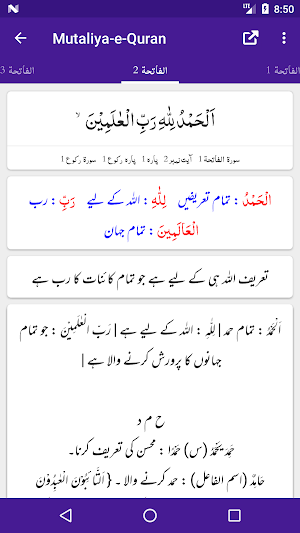 8:50
Mutaliya-e-Quran
الفاتحة 1
الفاتحة 2
الفاتحة 3
اَلْحَمْدُ لِلّٰهِ رَبِّ الْعٰلَمِيْنَ ۙ
سورة الفاتحة 1 آیت نمبر 2 پارہ 1 پارہ رکوع 1 سورة رکوع 1
الْحَمْدُ : تمام تعریفیں لِلّٰهِ : اللہ کے لیے رَبِّ : رب
الْعَالَمِينَ : تمام جہان
تعریف اللہ ہی کے لیے ہے جو تمام کائنات کا رب ہے
اَلْحَمْدُ : تمام حمد | لِلّٰهِ : اللہ کے لیے ہے | رَبِّ الْعٰلَمِيْنَ : جو تمام
جہانوں کا پرورش کرنے والا ہے |
ح م د
حَمِدَ يَحْمَدُ (س) حَمْدًا : محسن کی تعریف کرنا۔
حَامِدٌ (اسم الفاعل) : حمد کرنے والا ۔ { اَلتَّآئِبُوْنَ الْعٰبِدُوْنَ